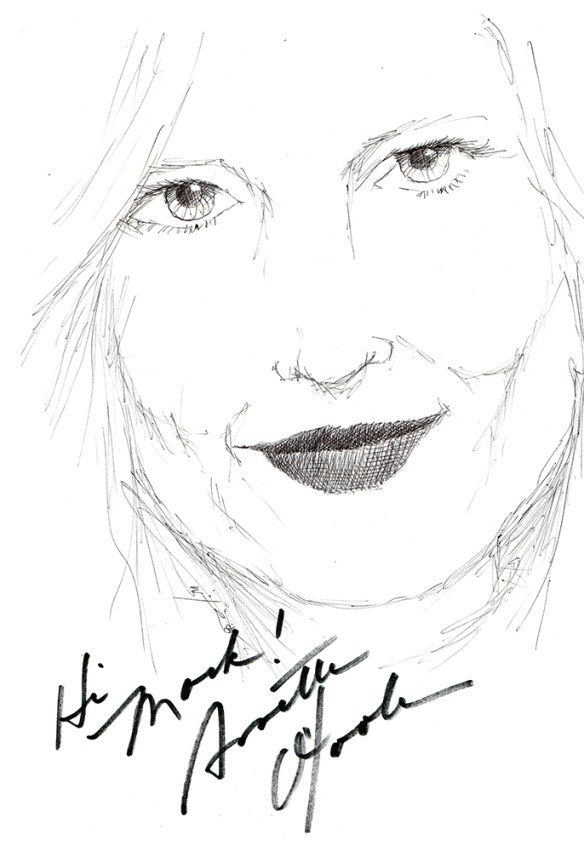 Hi Mark!
Annette
O'Toole